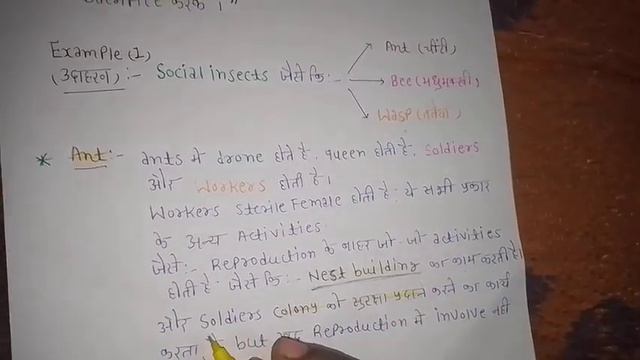 करके ।"
Example (1)
(उदाहरन) :- Social insects जैसे कि :-
Ant (चींटी)
Bee (मधुमक्खी)
Wasp (ततैया)
* Ant :- ants में drone होते है, queen होती है, Soldiers
और Workers होती है।
Workers Sterile Female होती है; ये सभी प्रकार
के अन्य Activities.
जैसे :- Reproduction के बाहर जो-जो activities
होती है, जैसे कि :- Nest building का काम करती है।
और Soldiers Colony को सुरक्षा प्रदान करने का कार्य
करता है but Reproduction में involve नही